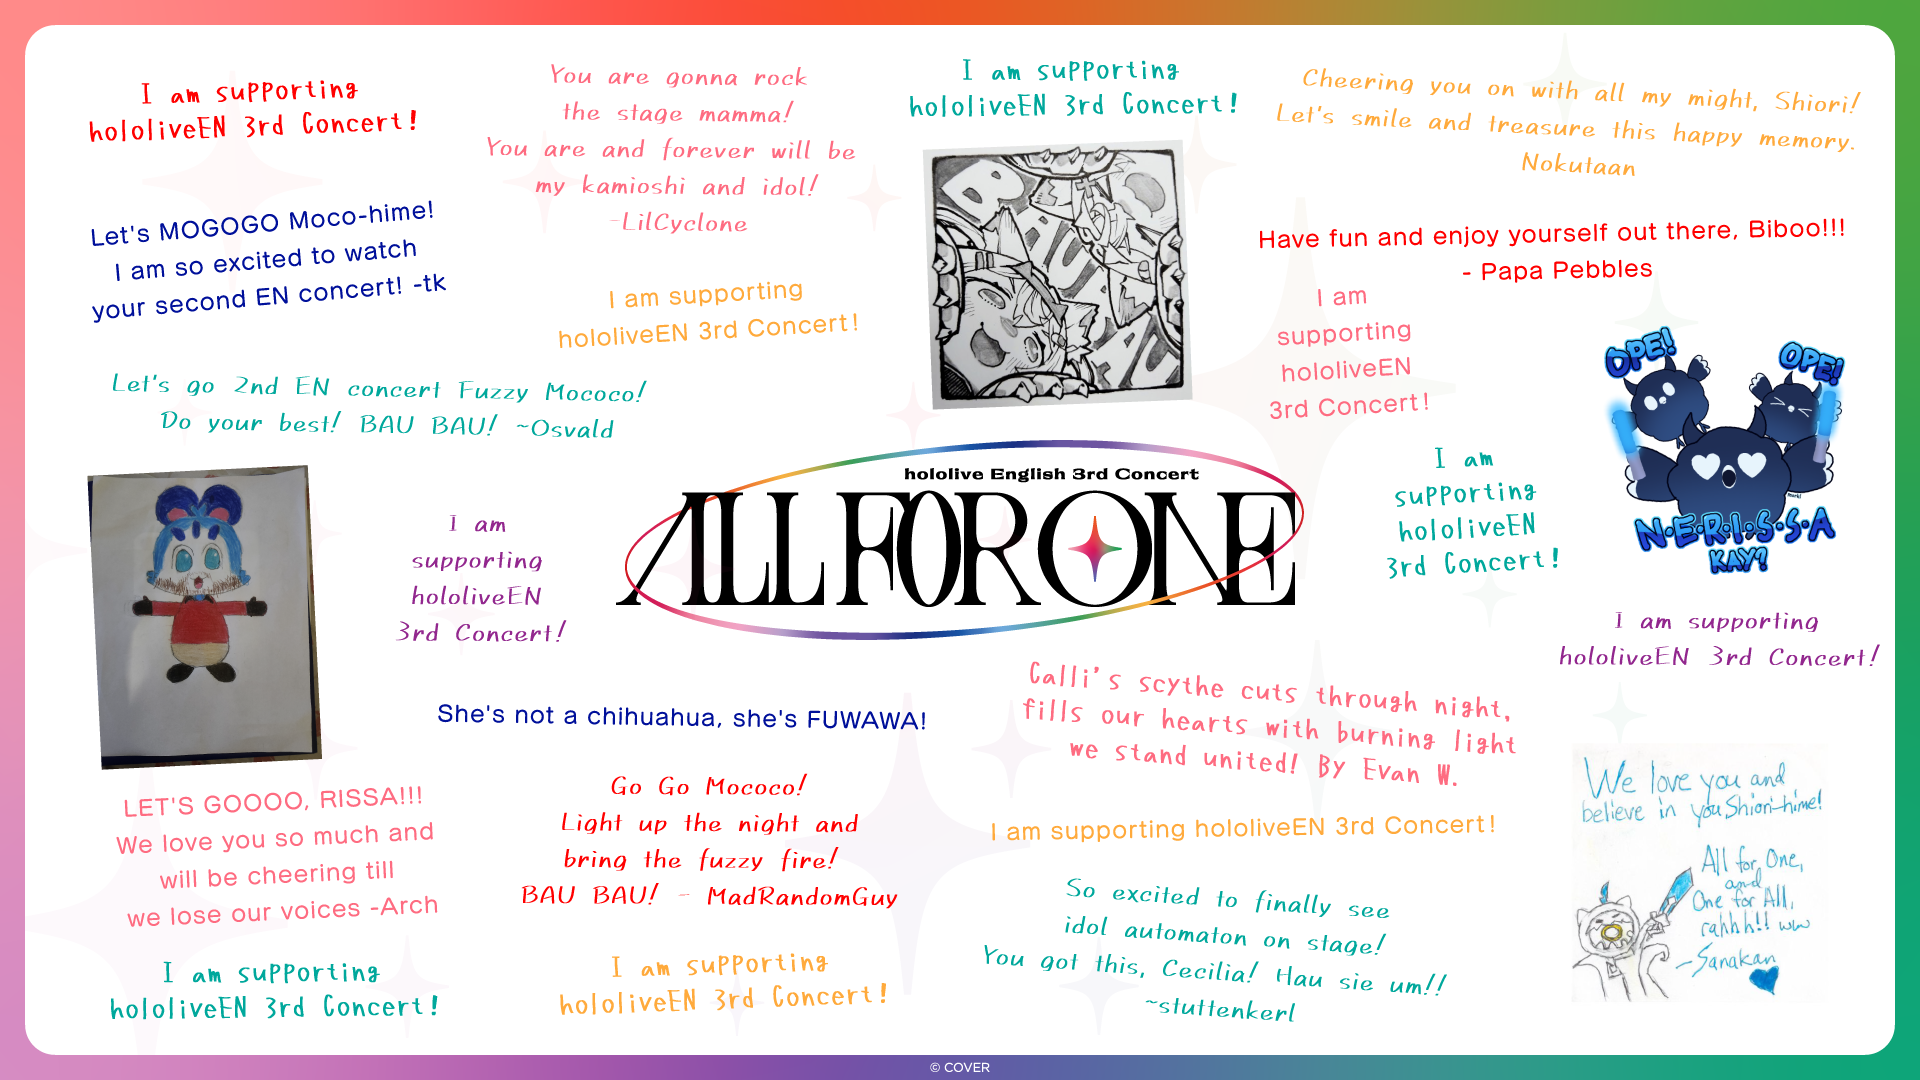 I am supporting
hololiveEN 3rd Concert!
You are gonna rock
the stage mamma!
You are and forever will be
my kamioshi and idol!
-LilCyclone
I am supporting
hololiveEN 3rd Concert!
Cheering you on with all my might, Shiori!
Let's smile and treasure this happy memory.
Nokutaan
Let's MOGOGO Moco-hime!
I am so excited to watch
your second EN concert! -tk
I am supporting
hololiveEN 3rd Concert!
BAU
BAU
Have fun and enjoy yourself out there, Biboo!!!
- Papa Pebbles
I am
supporting
hololiveEN
3rd Concert!
OPE!
OPE!
N·E·R·I·S·S·A
KAY?
Let's go 2nd EN concert Fuzzy Mococo!
Do your best! BAU BAU! ~Osvald
I am
supporting
hololiveEN
3rd Concert!
hololive English 3rd Concert
ALL FOR ONE
I am
supporting
hololiveEN
3rd Concert!
I am supporting
hololiveEN 3rd Concert!
She's not a chihuahua, she's FUWAWA!
Calli's scythe cuts through night,
fills our hearts with burning light
we stand united! By Evan W.
LET'S GOOOO, RISSA!!!
We love you so much and
will be cheering till
we lose our voices -Arch
Go Go Mococo!
Light up the night and
bring the fuzzy fire!
BAU BAU! - MadRandomGuy
I am supporting hololiveEN 3rd Concert!
We love you and
believe in you Shiori-hime!
All for One,
and
One for All,
rahhh!! ww
-Sanakan
So excited to finally see
idol automaton on stage!
You got this, Cecilia! Hau sie um!!
~stuttenkerl
I am supporting
hololiveEN 3rd Concert!
I am supporting
hololiveEN 3rd Concert!
© COVER